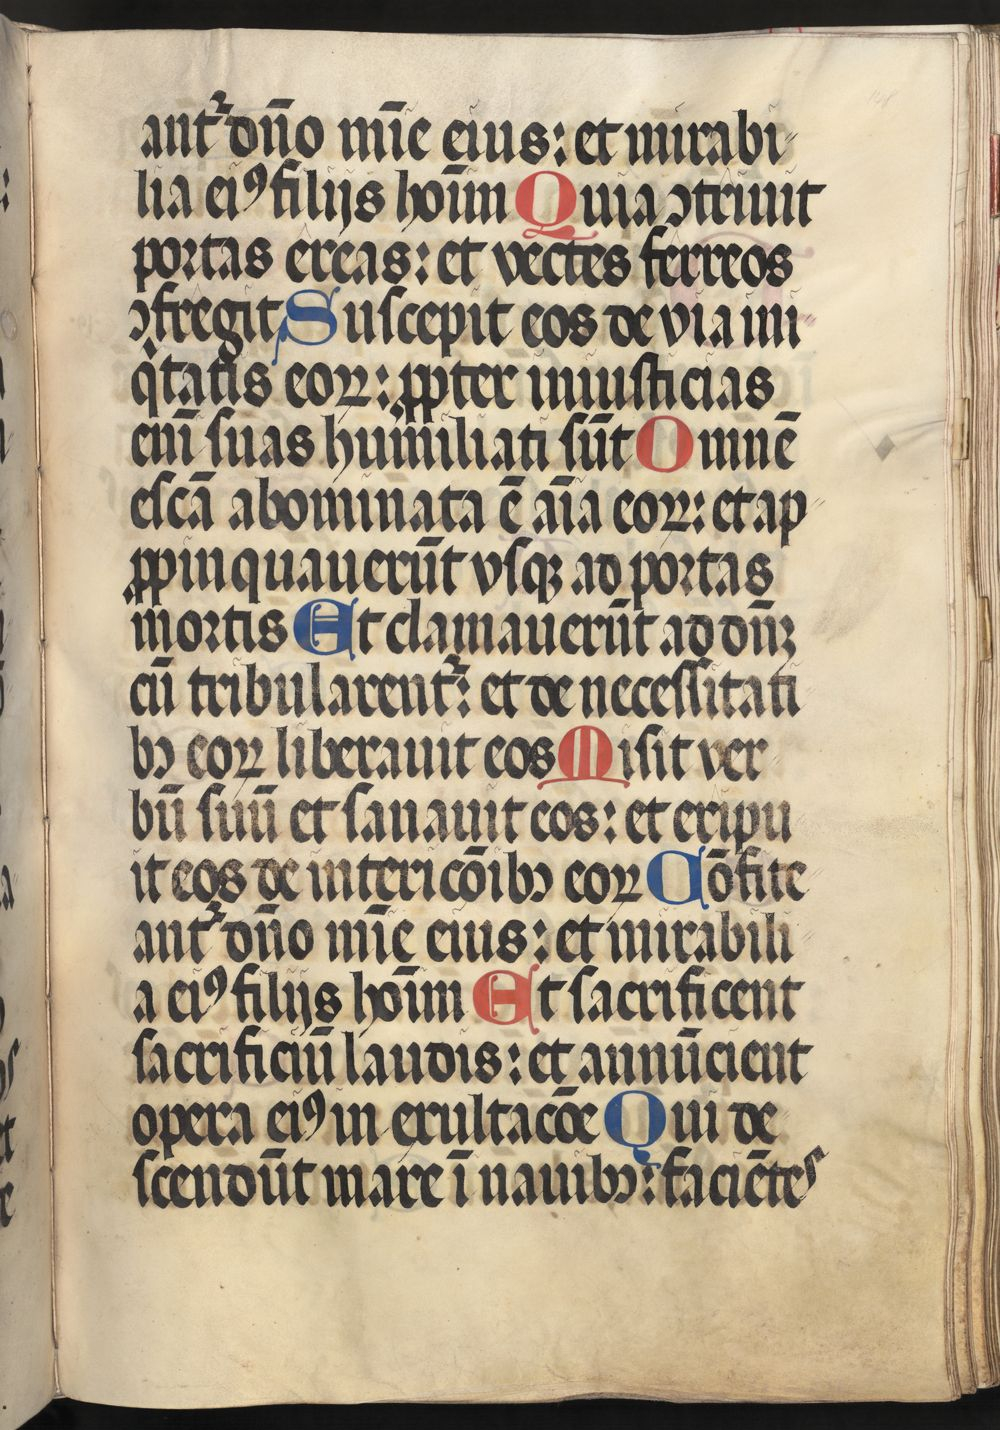 antᷣ dn̄o mīe eius: et mirabi-
lia eiꝰ filijs hoīm Quia ꝯtriuit
portas ereas: et vectes ferreos
ꝯfregit Suscepit eos de via ini-
q̇tatis eoꝝ: ꝓpter iniusticias
eni̅ suas humiliati su̅t Omne̅
esca̅ abominata e̅ ai̅a eoꝝ: et ap
ꝓpinquaueru̅t vsqꝫ ad portas
mortis Et clamaueru̅t ad dn̅ꝫ
cu̅ tribularentᷣ: et de necessitati
bꝫ eoꝝ liberauit eos Misit ver
bu̅ suu̅ et sanauit eos: et eripu
it eos de intericōibꝫ eoꝝ Co̅fite
antᷣ dn̄o mīe eius: et mirabili
a eiꝰ filijs hoīm Et sacrificent
sacrificiu̅ laudis: et annu̅cient
opera eiꝰ in exultacōe Qui de
scendu̅t mare i̅ nauibꝫ: facie̅tes